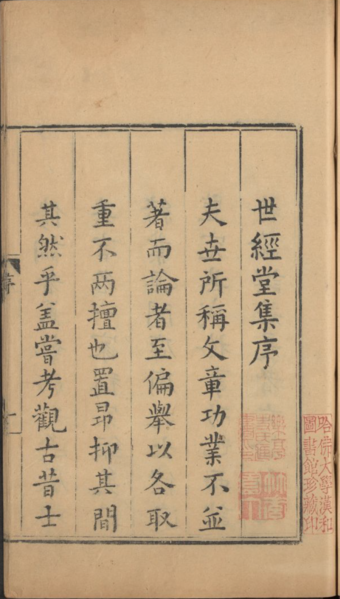 世經堂集序
夫世所稱文章功業不並
著而論者至偏舉以各取
重不兩擅也置昻抑其間
其然乎盖嘗考觀古昔士
序
一
哈佛大學漢和
圖書館珍藏印